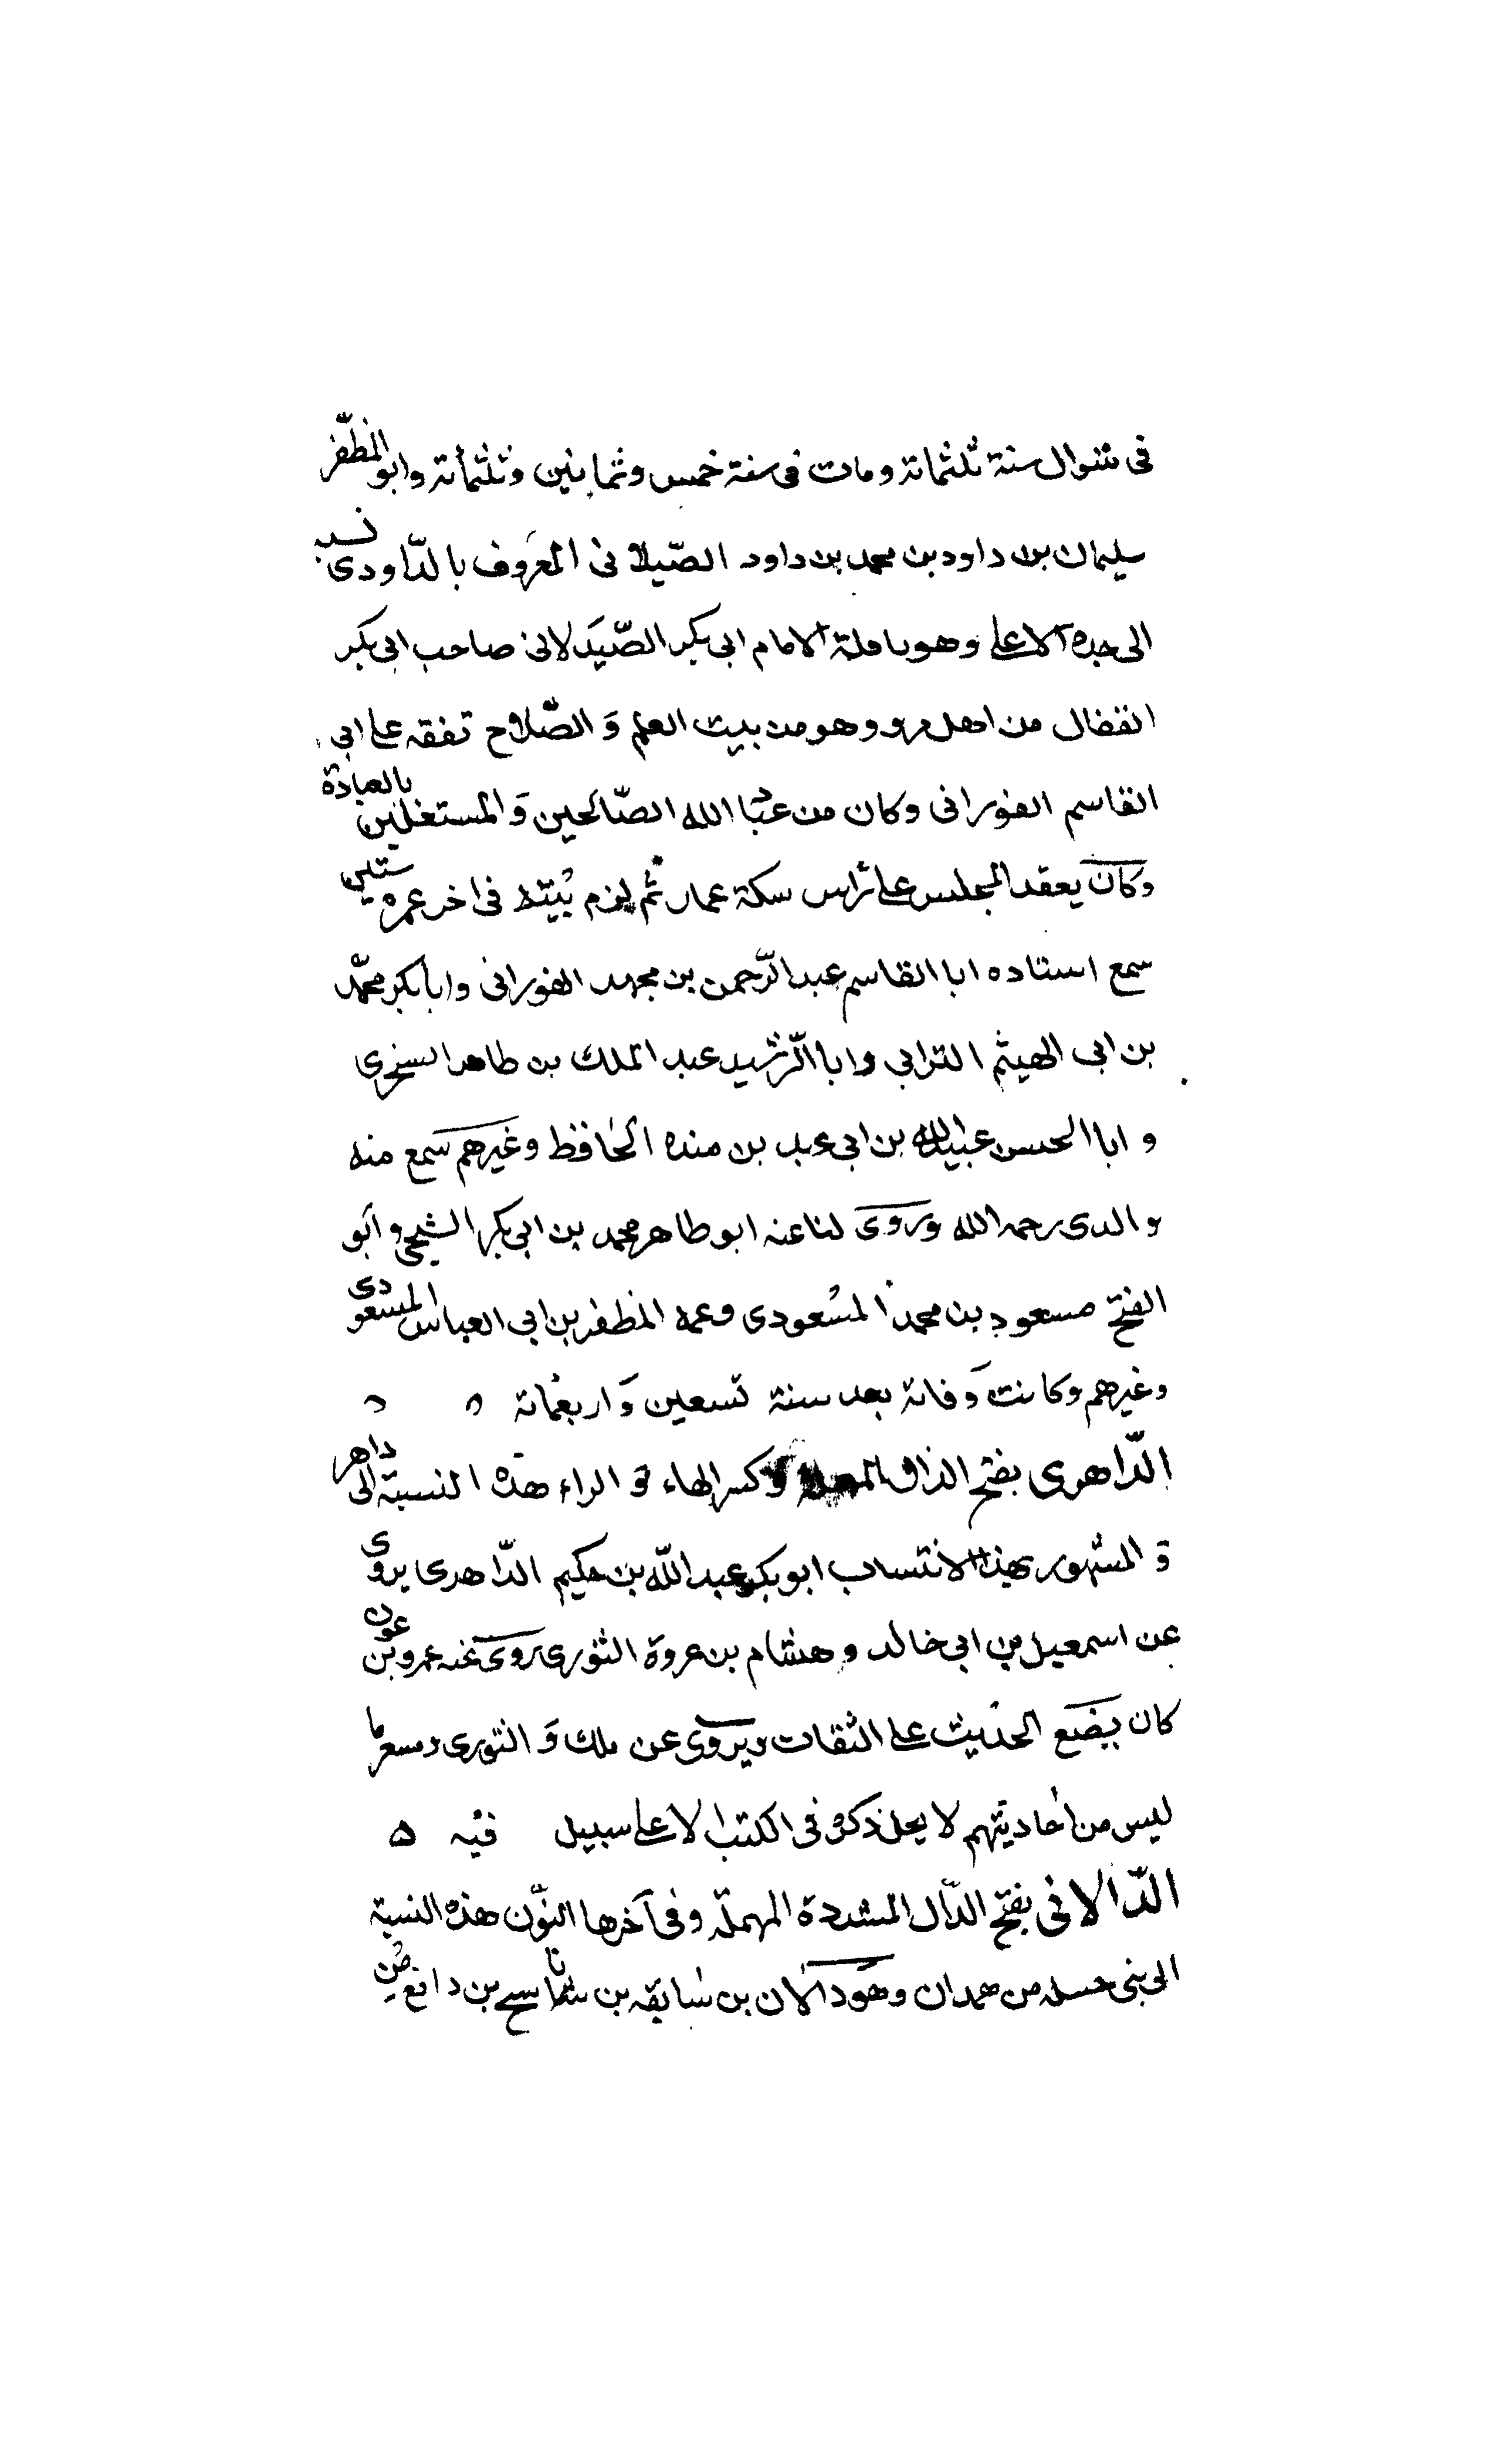 فى شوال سنة ثلثمائة ومات فى سنة خمس وثمانين وثلثمائة وابو المظفر
سليمان بن داود بن محمد بن داود الصيلانى المعروف بالداودى نسبه
الى جده الاعلى وهو نافلة الامام ابى بكر الصيدلانى صاحب ابى بكر
القفال من اهل مرو وهو من بيت العلم والصلاح تفقه على ابى
القاسم الفورانى وكان من عباد الله الصالحين والمستغلين بالعبادة
وكان يعقد المجلس على راس سكة عمار ثم لزم بيته فى اخر عمره ستين
سمع استاده ابا القاسم عبد الرحمن بن محمد الفورانى وابا بكر محمد
بن ابى الهيثم الترابى وابا الرشيد عبد الملك بن طاهر السنجرى
وابا الحسن عبيد الله بن ابى عبد بن منده الحافظ وغيرهم سمع منه
والدى رحمه الله وروى لنا عنه ابو طاهر محمد بن ابى بكر الشيحى وابو
الفتح مسعود بن محمد المسعودى وعمه المظفر بن ابى العباس المسعودى
وغيرهم وكانت وفاته بعد سنة تسعين واربعمائة ٥
الداهرى بفتح الدال المهملة وكسر الهاء و الراء هذه النسبة الى داهر
و المشهور بهذا الانتساب ابو بكر عبد الله بن حكيم الداهرى يروى
عن اسمعيل بن ابى خالد وهشام بن عروة الثورى روى عنه عمرو بن عون
كان يضع الحديث على الثقات ويروى عن ملك والثورى ومسعر ما
ليس من أحاديثهم لا يحل ذكره فى الكتب الا على سبيل فيه ٥
الدالانى بفتح الدال المشددة المهملة وفى آخرها النون هذه النسبة
الى بنى من همدان وهو دالان بن سابقه بن ناسح بن دافع من